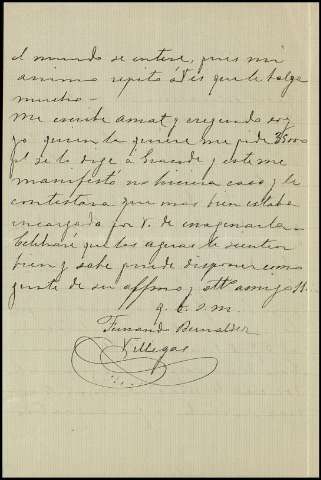 el mundo se entere, pues mi
animo repito á V. es que le salga
mucho—
Me escribe Amat y creyendo soy
yo quien la quiere me pide 35000
pl se lo dige á Izaeta y este me
manifestó no hiciera caso y le
contestara que mas bien estaba
encargado por V. de enagenarla—
Celebraré que las aguas le sienten
bien y sabe puede disponer como
guste de su affmo y atto amigo S.S.
q. b. s. m.
Fernando Bernaldez
Villegas